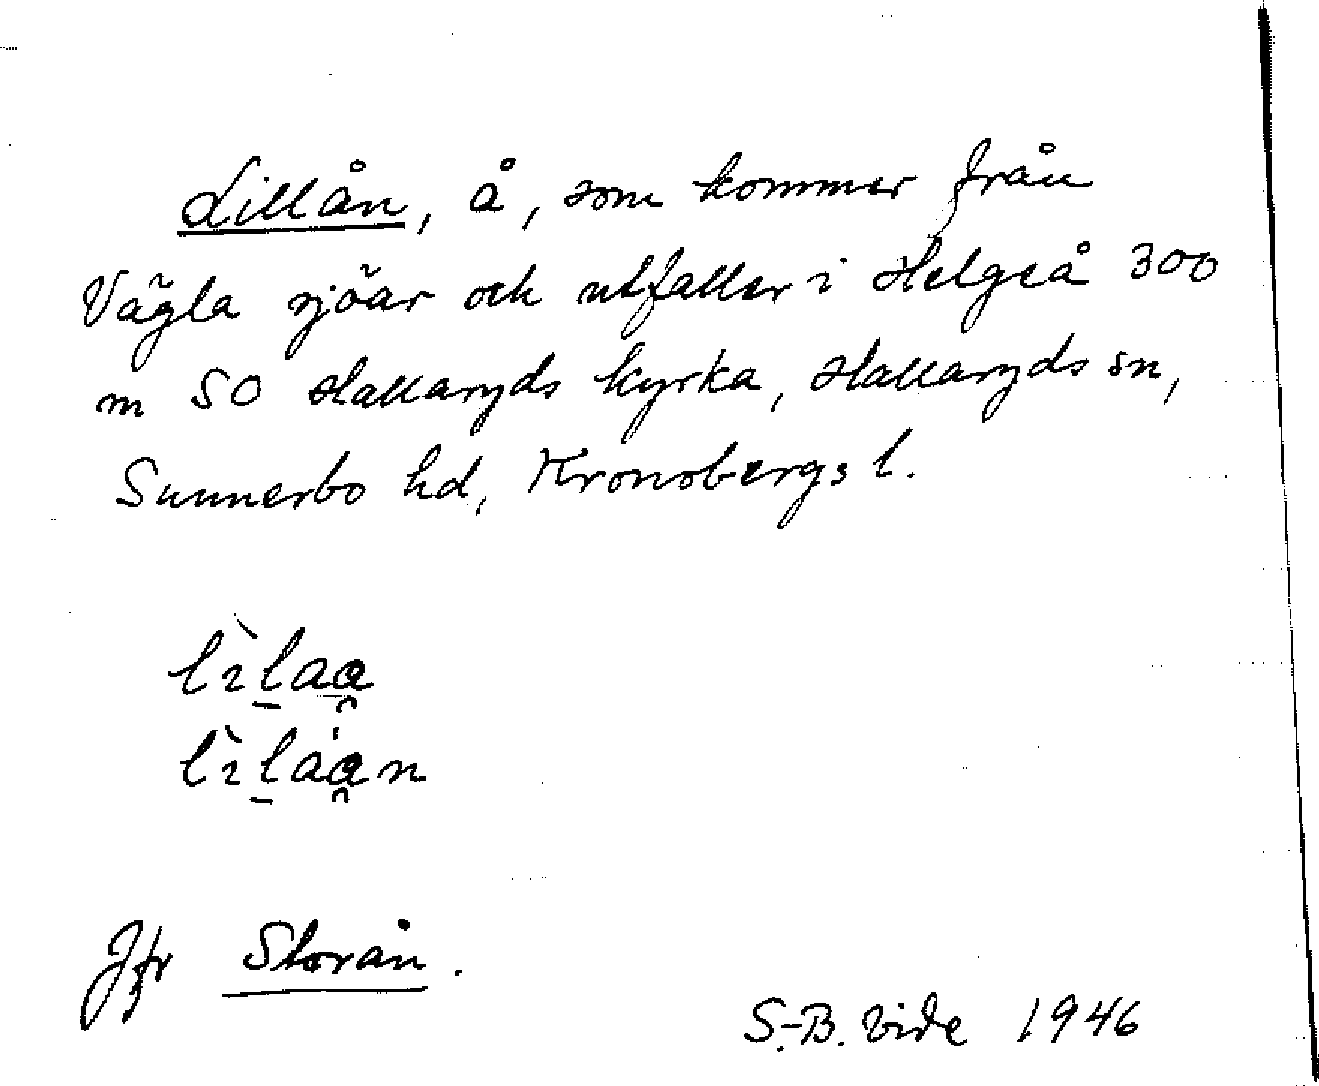 Lillån, å, som kommer från
Vägla sjöar och utfaller i Helgeå 300
m SO Hallaryds kyrka, Hallaryds sn,
Sunnerbo hd, Kronobergs l.
Jfr Storån.
S.-B. Vide 1946